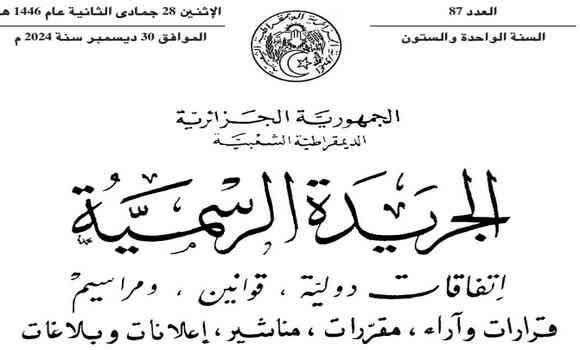 العدد 87
السنة الواحدة والستون
الإثنين 28 جمادى الثانية عام 1446 هـ
الموافق 30 ديسمبر سنة 2024 م
الجمهورية الجزائرية
الديمقراطية الشعبية
الجريدة الرسمية
إتفاقات دولية ، قوانين ، ومراسيم
قرارات وآراء ، مقررات ، مناشير ، إعلانات وبلاغات